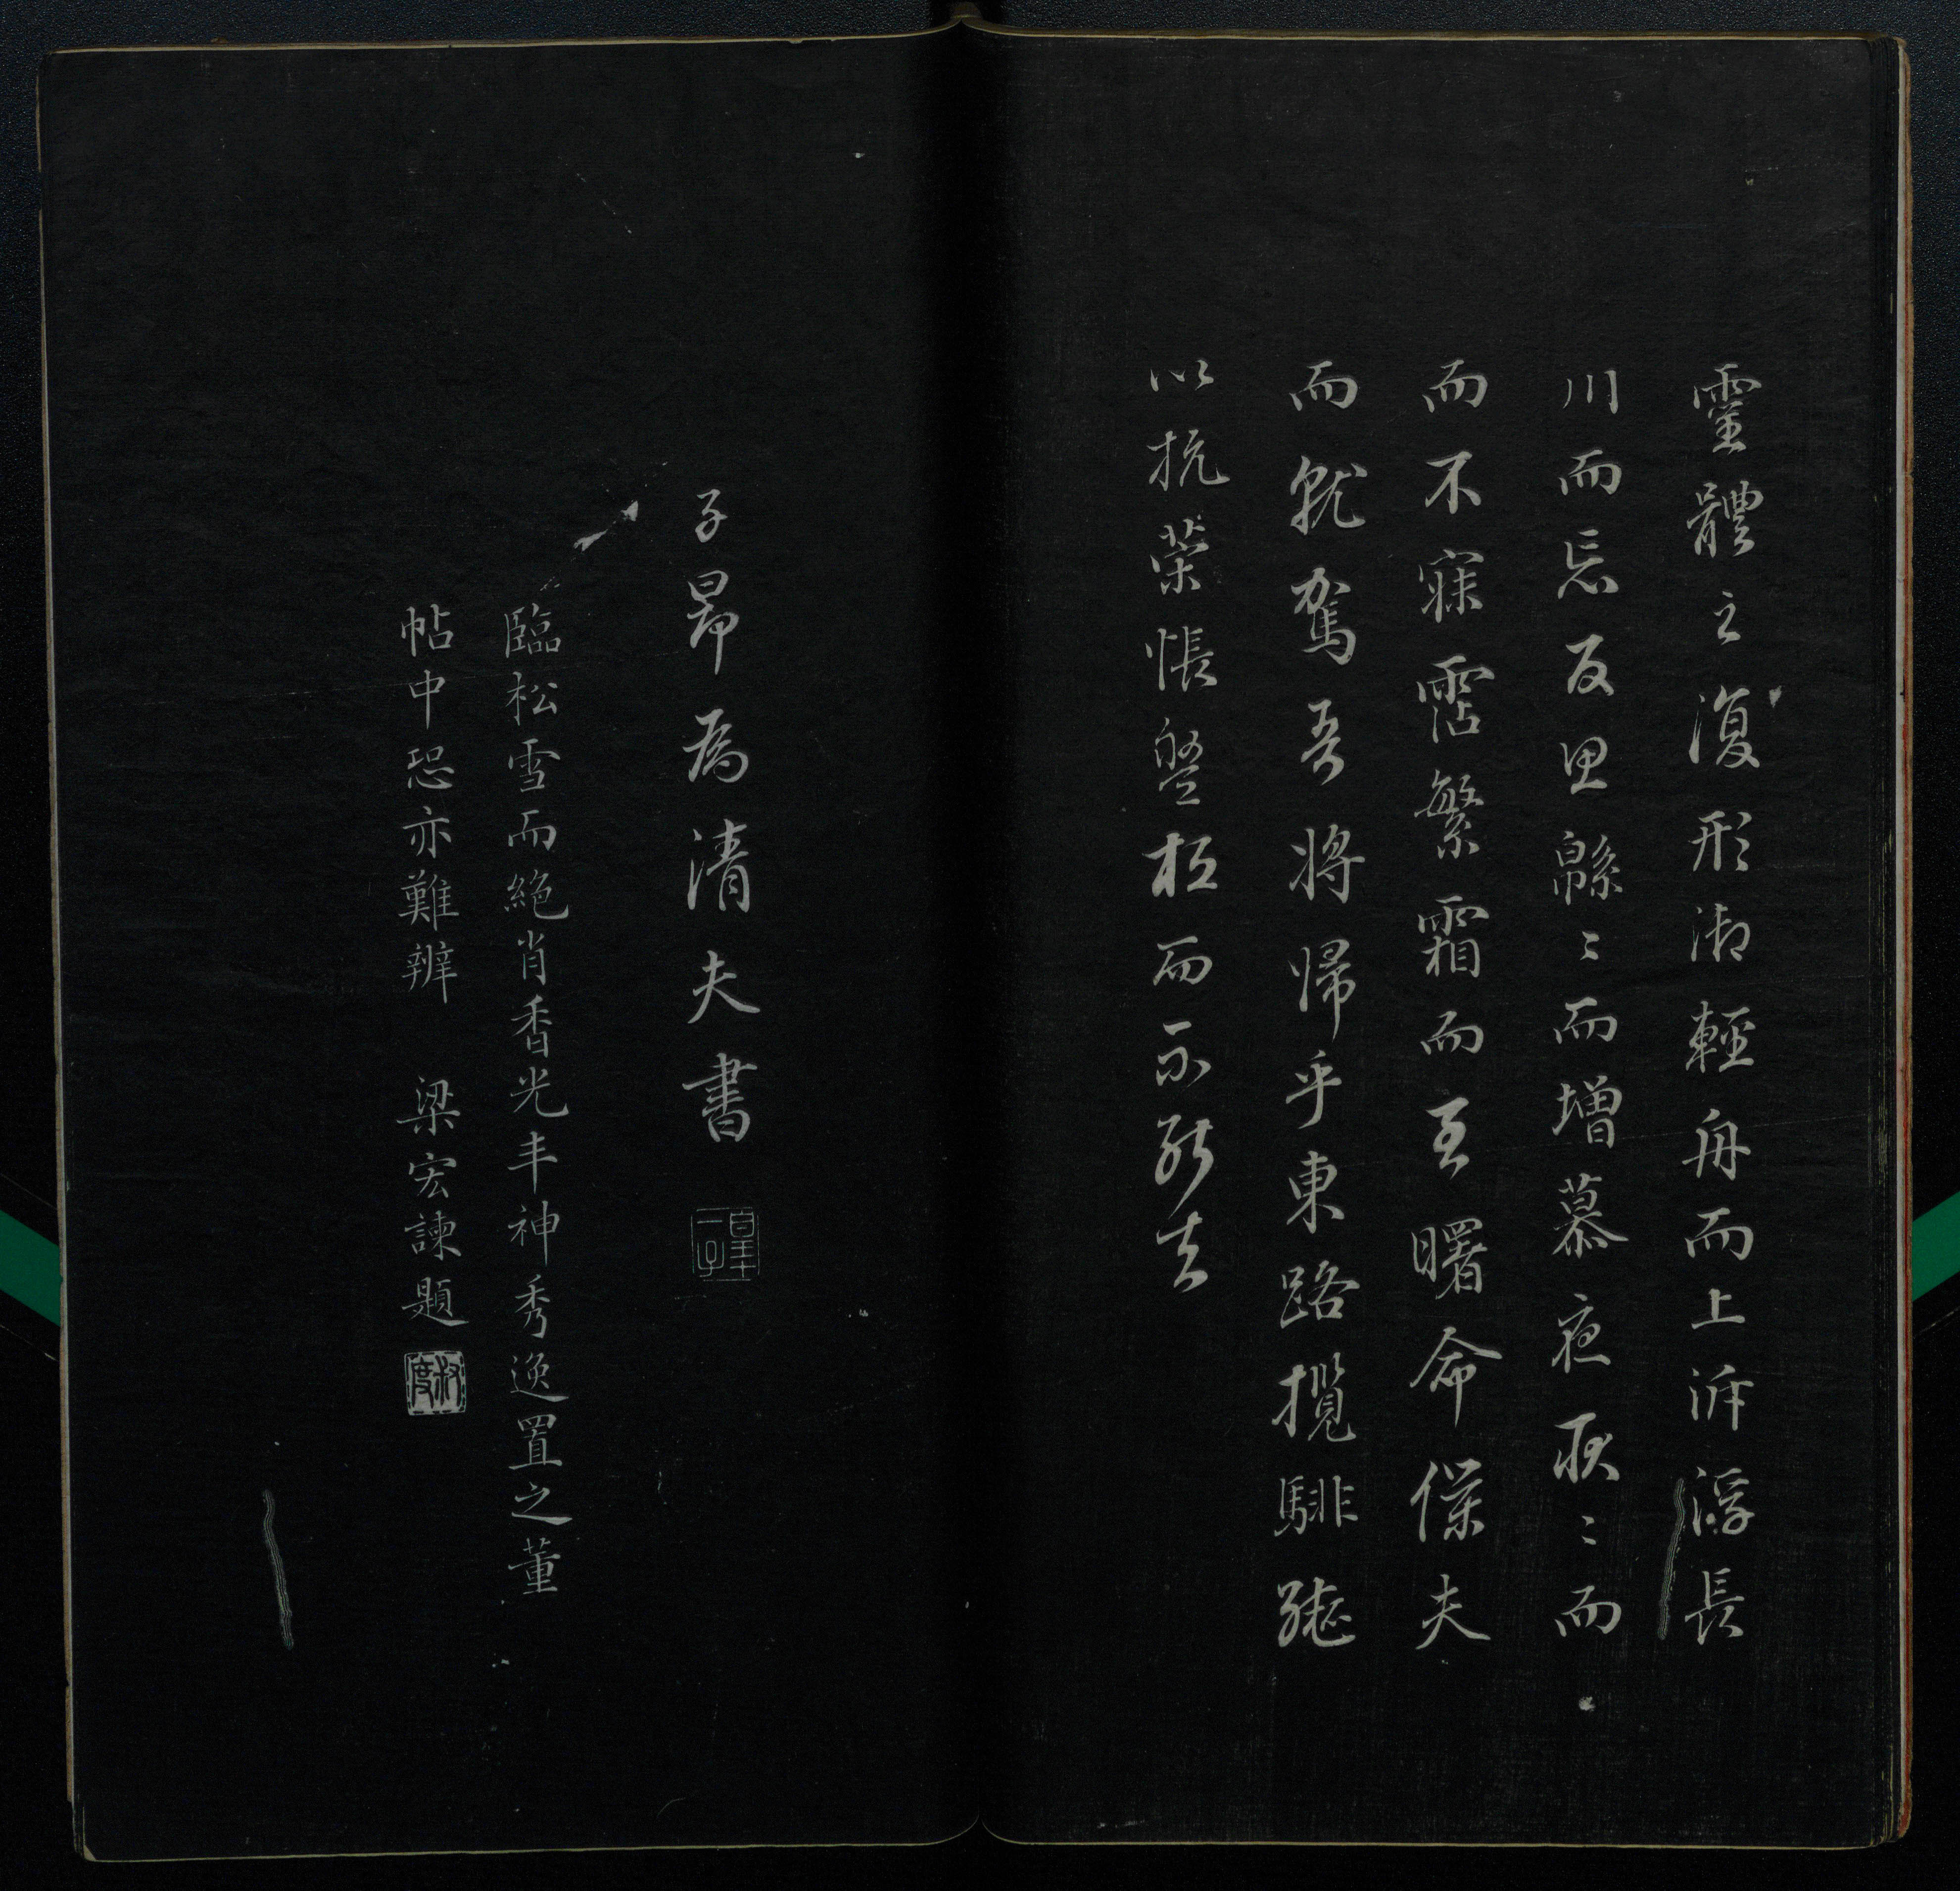 靈體之復形御輕舟而上泝浮長
川而忘反思緜〻而增慕夜耿〻而
而不寐霑繁霜而至曙命僕夫
而就駕吾將歸乎東路攬騑轡
以抗策悵盤桓而不能去
子昂為清夫書
臨松雪而絶肖香光丰神秀逸置之董
帖中恐亦難辨 梁宏諫題
叔度